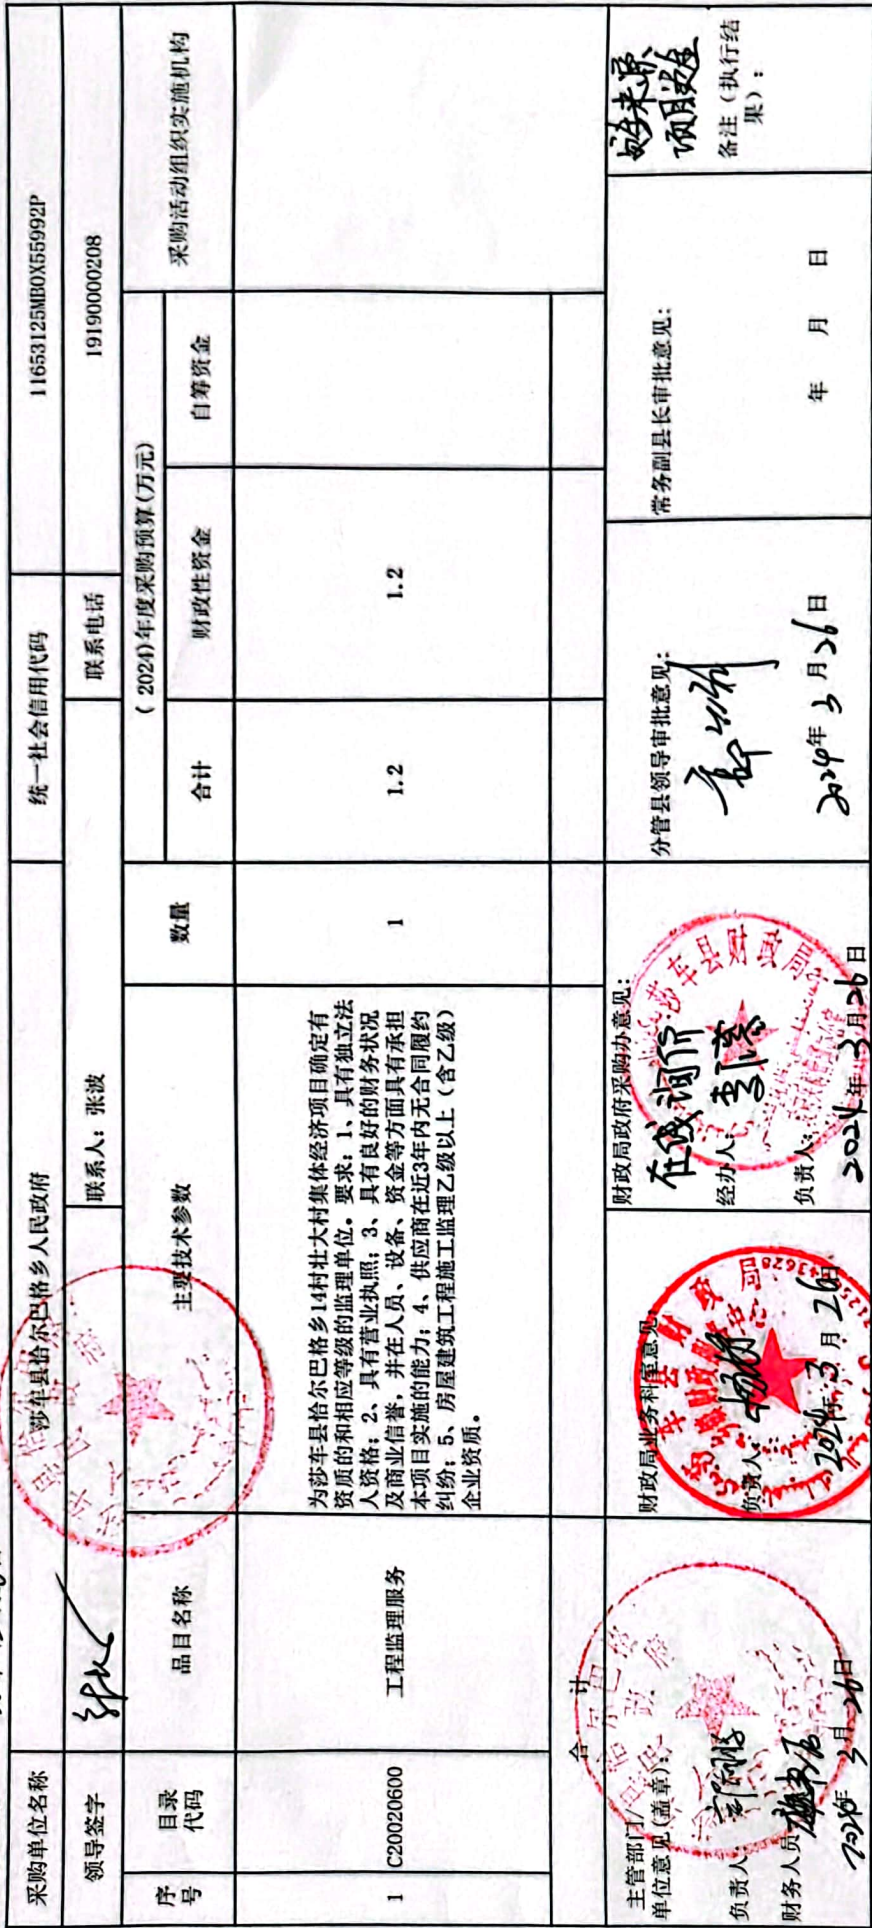 采购单位名称
莎车县恰尔巴格乡人民政府
统一社会信用代码
11653125MB0X55992P
领导签字
联系人：张波
联系电话
19190000208
序号
目录代码
品目名称
主要技术参数
数量
（2024)年度采购预算(万元)
合计
财政性资金
自筹资金
采购活动组织实施机构
1
C20020600
工程监理服务
为莎车县恰尔巴格乡14村壮大村集体经济项目确定有
资质的和相应等级的监理单位。要求：1、具有独立法
人资格；2、具有营业执照；3、具有良好的财务状况
及商业信誉，并在人员、设备、资金等方面具有承担
本项目实施的能力；4、供应商在近3年内无合同履约
纠纷；5、房屋建筑工程施工监理乙级以上（含乙级）
企业资质。
1
1.2
1.2
合 计
主管部门/
单位意见(盖章)：
负责人：
财务人员
2024年3月26日
财政局业务科室意见：
负责人：
2024年3月26日
财政局政府采购办意见：
在线询价
经办人：
负责人：
2024年3月26日
莎车县财政局
分管县领导审批意见：
2024年3月26日
常务副县长审批意见：
年 月 日
备注（执行结
果）：